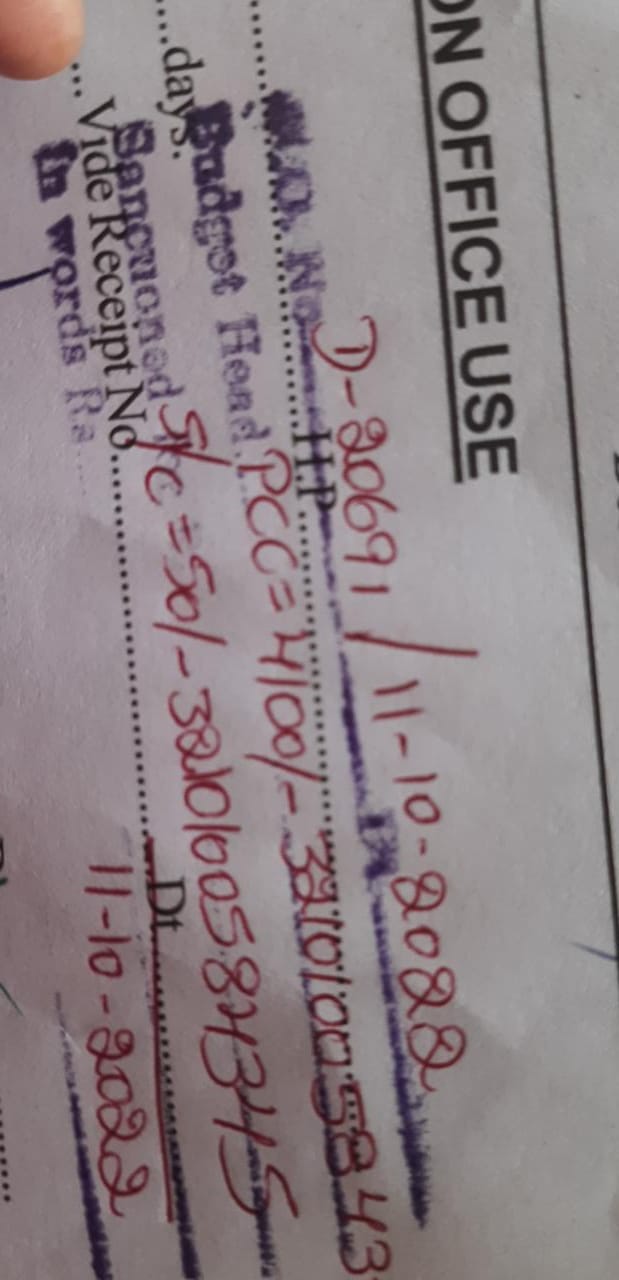 ON OFFICE USE
D-20691 / 11-10-2022
No. Dt.
....H.P....
PCC = 4100/- 32101005843
Budget Head
....days.
S/C = 50/- 321010058434345
Sanctioned
.... Vide Receipt No. .... Dt. ....
11-10-2022
In words Rs ....